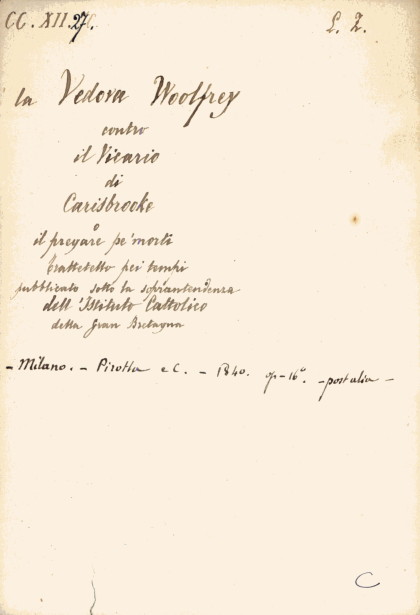 CC. XII. 27.
L. Z.
la Vedova Woolfrey
contro
il Vicario
di
Carisbrooke
o
il pregare pe' morti
Trattetetto pei tempi
pubblicato sotto la soprantendenza
dell'Istituto Cattolico
della Gran Bretagna
- Milano. - Pirotta e C. - 1840. op - 16.° - post alia -
C